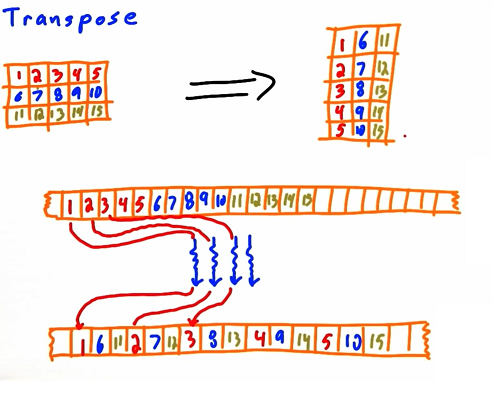 Transpose
1 2 3 4 5
6 7 8 9 10
11 12 13 14 15
1 6 11
2 7 12
3 8 13
4 9 14
5 10 15
1 2 3 4 5 6 7 8 9 10 11 12 13 14 15
1 6 11 2 7 12 3 8 13 4 9 14 5 10 15